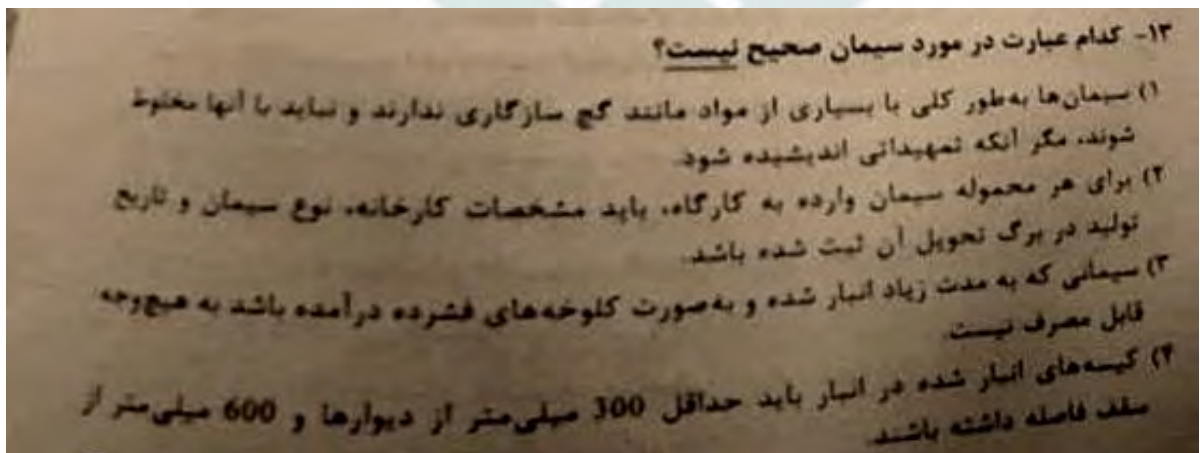 ۱۳- کدام عبارت در مورد سیمان صحیح نیست؟
۱) سیمان‌ها به‌طور کلی با بسیاری از مواد مانند گچ سازگاری ندارند و نباید با آنها مخلوط
شوند، مگر آنکه تمهیداتی اندیشیده شود.
۲) برای هر محموله سیمان وارده به کارگاه، باید مشخصات کارخانه، نوع سیمان و تاریخ
تولید در برگ تحویل آن ثبت شده باشد.
۳) سیمانی که به مدت زیاد انبار شده و به‌صورت کلوخه‌های فشرده درآمده باشد به هیچ‌وجه
قابل مصرف نیست.
۴) کیسه‌های انبار شده در انبار باید حداقل 300 میلی‌متر از دیوارها و 600 میلی‌متر از
سقف فاصله داشته باشند.